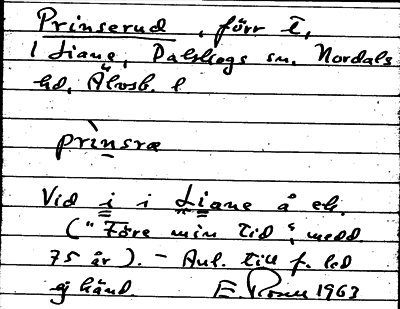 Prinserud, förr t,
i Liane, Dalskogs sn. Nordals
hd, Älvsb. l
prìnsræ
Vid i i Liane å ek.
("Före min tid", medd.
75 år). – Anl. till f. led
ej händ. E. Rosen 1963